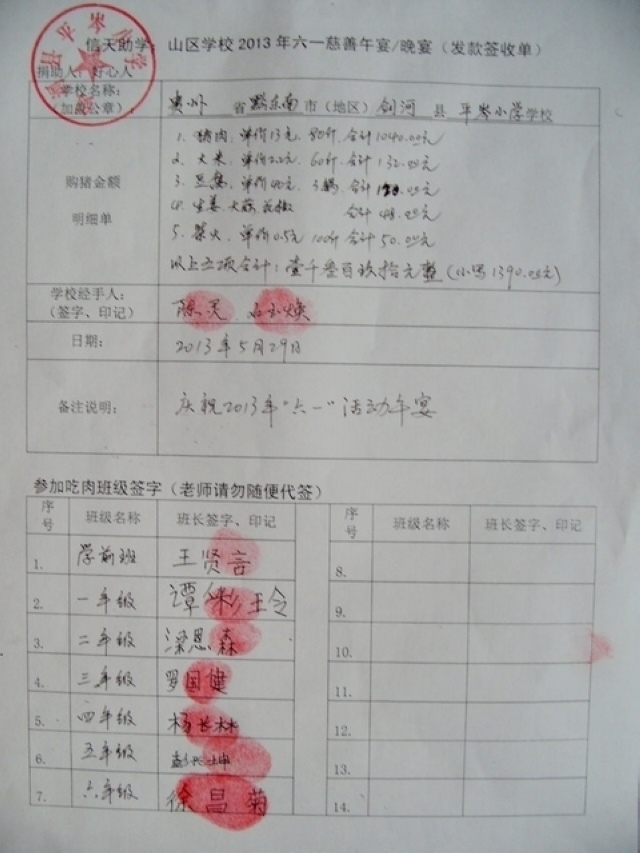 信天助学：山区学校2013年六一慈善午宴/晚宴（发款签收单）
捐助人：好心人
学校名称：
（加盖公章）
贵州 省 黔东南 市（地区） 剑河 县 平岑小学 学校
购猪金额
明细单
1. 猪肉，单价13元，80斤，合计1040.00元
2. 大米，单价2.2元，60斤，合计132.00元
3. 豆腐，单价40元，3锅，合计120.00元
4. 生姜 大蒜 花椒 合计48.00元
5. 柴火，单价0.5元 100斤 合计50.00元
以上五项合计：壹千叁百玖拾元整（小写1390.00元）
学校经手人：
（签字、印记）
日期：
2013年5月29日
备注说明：
庆祝2013年“六一”活动午宴
参加吃肉班级签字（老师请勿随便代签）
序号 班级名称 班长签字、印记 序号 班级名称 班长签字、印记
1. 学前班 王贤言 8.
2. 一年级 谭彬 王令 9.
3. 二年级 梁恩森 10.
4. 三年级 罗国健 11.
5. 四年级 杨长林 12.
6. 五年级 13.
7. 六年级 徐昌菊 14.